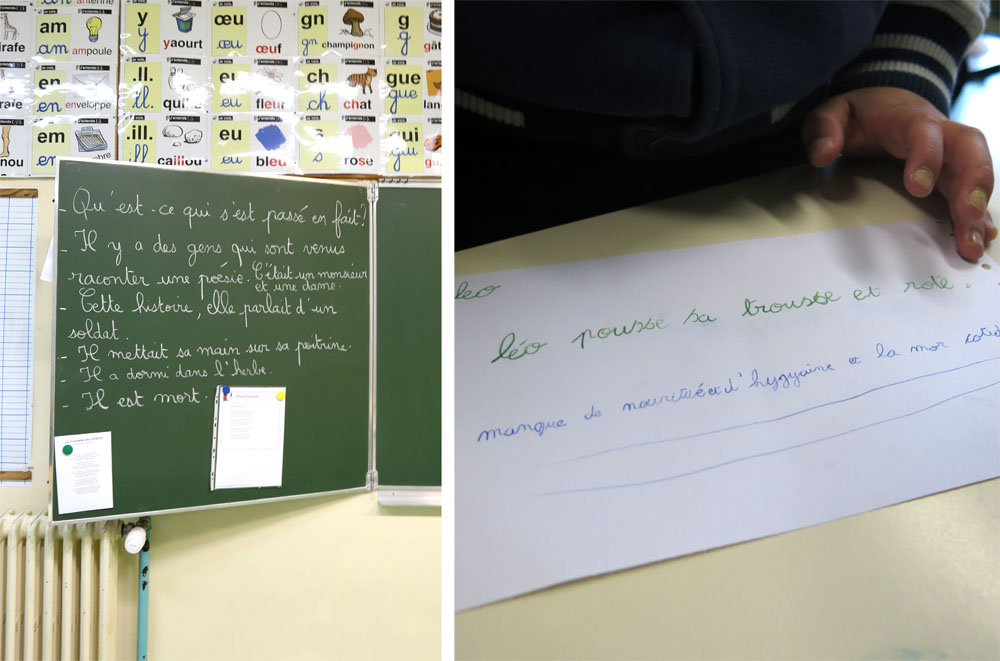 am
am
ampoule
y
y
yaourt
œu
œu
œuf
gn
gn
champignon
g
g
en
en
enveloppe
.ll.
ll.
eu
eu
fleur
ch
ch
chat
gue
gue
em
em
.ill.
ill.
caillou
eu
eu
bleu
s
s
rose
gui
gui
- Qu'est-ce qui s'est passé en fait?
- Il y a des gens qui sont venus
raconter une poésie. C'était un monsieur
et une dame.
- Cette histoire, elle parlait d'un
soldat.
- Il mettait sa main sur sa poitrine.
- Il a dormi dans l'herbe.
- Il est mort.
léo
léo pousse sa trousse et rote.
manque de nouritué et d'hygyaine et la mor